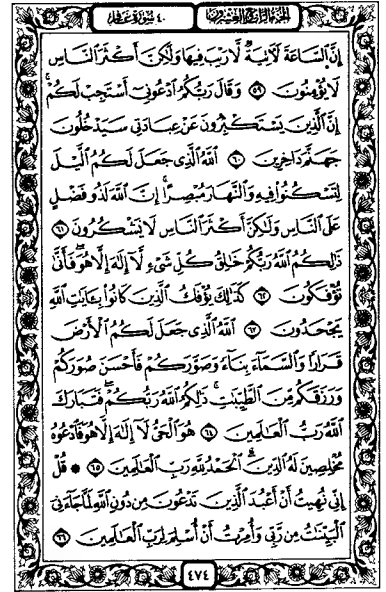 الجزء الرابع والعشرون ٤٠ سورة غافر
إِنَّ ٱلسَّاعَةَ لَـَٔاتِيَةٌ لَّا رَيْبَ فِيهَا وَلَـٰكِنَّ أَكْثَرَ ٱلنَّاسِ
لَا يُؤْمِنُونَ ٥٩ وَقَالَ رَبُّكُمُ ٱدْعُونِىٓ أَسْتَجِبْ لَكُمْ ۚ
إِنَّ ٱلَّذِينَ يَسْتَكْبِرُونَ عَنْ عِبَادَتِى سَيَدْخُلُونَ
جَهَنَّمَ دَاخِرِينَ ٦٠ ٱللَّهُ ٱلَّذِى جَعَلَ لَكُمُ ٱلَّيْلَ
لِتَسْكُنُوا۟ فِيهِ وَٱلنَّهَارَ مُبْصِرًا ۚ إِنَّ ٱللَّهَ لَذُو فَضْلٍ
عَلَى ٱلنَّاسِ وَلَـٰكِنَّ أَكْثَرَ ٱلنَّاسِ لَا يَشْكُرُونَ ٦١
ذَٰلِكُمُ ٱللَّهُ رَبُّكُمْ خَـٰلِقُ كُلِّ شَىْءٍ لَّآ إِلَـٰهَ إِلَّا هُوَ ۖ فَأَنَّىٰ
تُؤْفَكُونَ ٦٢ كَذَٰلِكَ يُؤْفَكُ ٱلَّذِينَ كَانُوا۟ بِـَٔايَـٰتِ ٱللَّهِ
يَجْحَدُونَ ٦٣ ٱللَّهُ ٱلَّذِى جَعَلَ لَكُمُ ٱلْأَرْضَ
قَرَارًا وَٱلسَّمَآءَ بِنَآءً وَصَوَّرَكُمْ فَأَحْسَنَ صُوَرَكُمْ
وَرَزَقَكُم مِّنَ ٱلطَّيِّبَـٰتِ ۚ ذَٰلِكُمُ ٱللَّهُ رَبُّكُمْ ۖ فَتَبَارَكَ
ٱللَّهُ رَبُّ ٱلْعَـٰلَمِينَ ٦٤ هُوَ ٱلْحَىُّ لَآ إِلَـٰهَ إِلَّا هُوَ فَٱدْعُوهُ
مُخْلِصِينَ لَهُ ٱلدِّينَ ۗ ٱلْحَمْدُ لِلَّهِ رَبِّ ٱلْعَـٰلَمِينَ ٦٥ ۞ قُلْ
إِنِّى نُهِيتُ أَنْ أَعْبُدَ ٱلَّذِينَ تَدْعُونَ مِن دُونِ ٱللَّهِ لَمَّا جَآءَنِىَ
ٱلْبَيِّنَـٰتُ مِن رَّبِّى وَأُمِرْتُ أَنْ أُسْلِمَ لِرَبِّ ٱلْعَـٰلَمِينَ ٦٦
٤٧٤